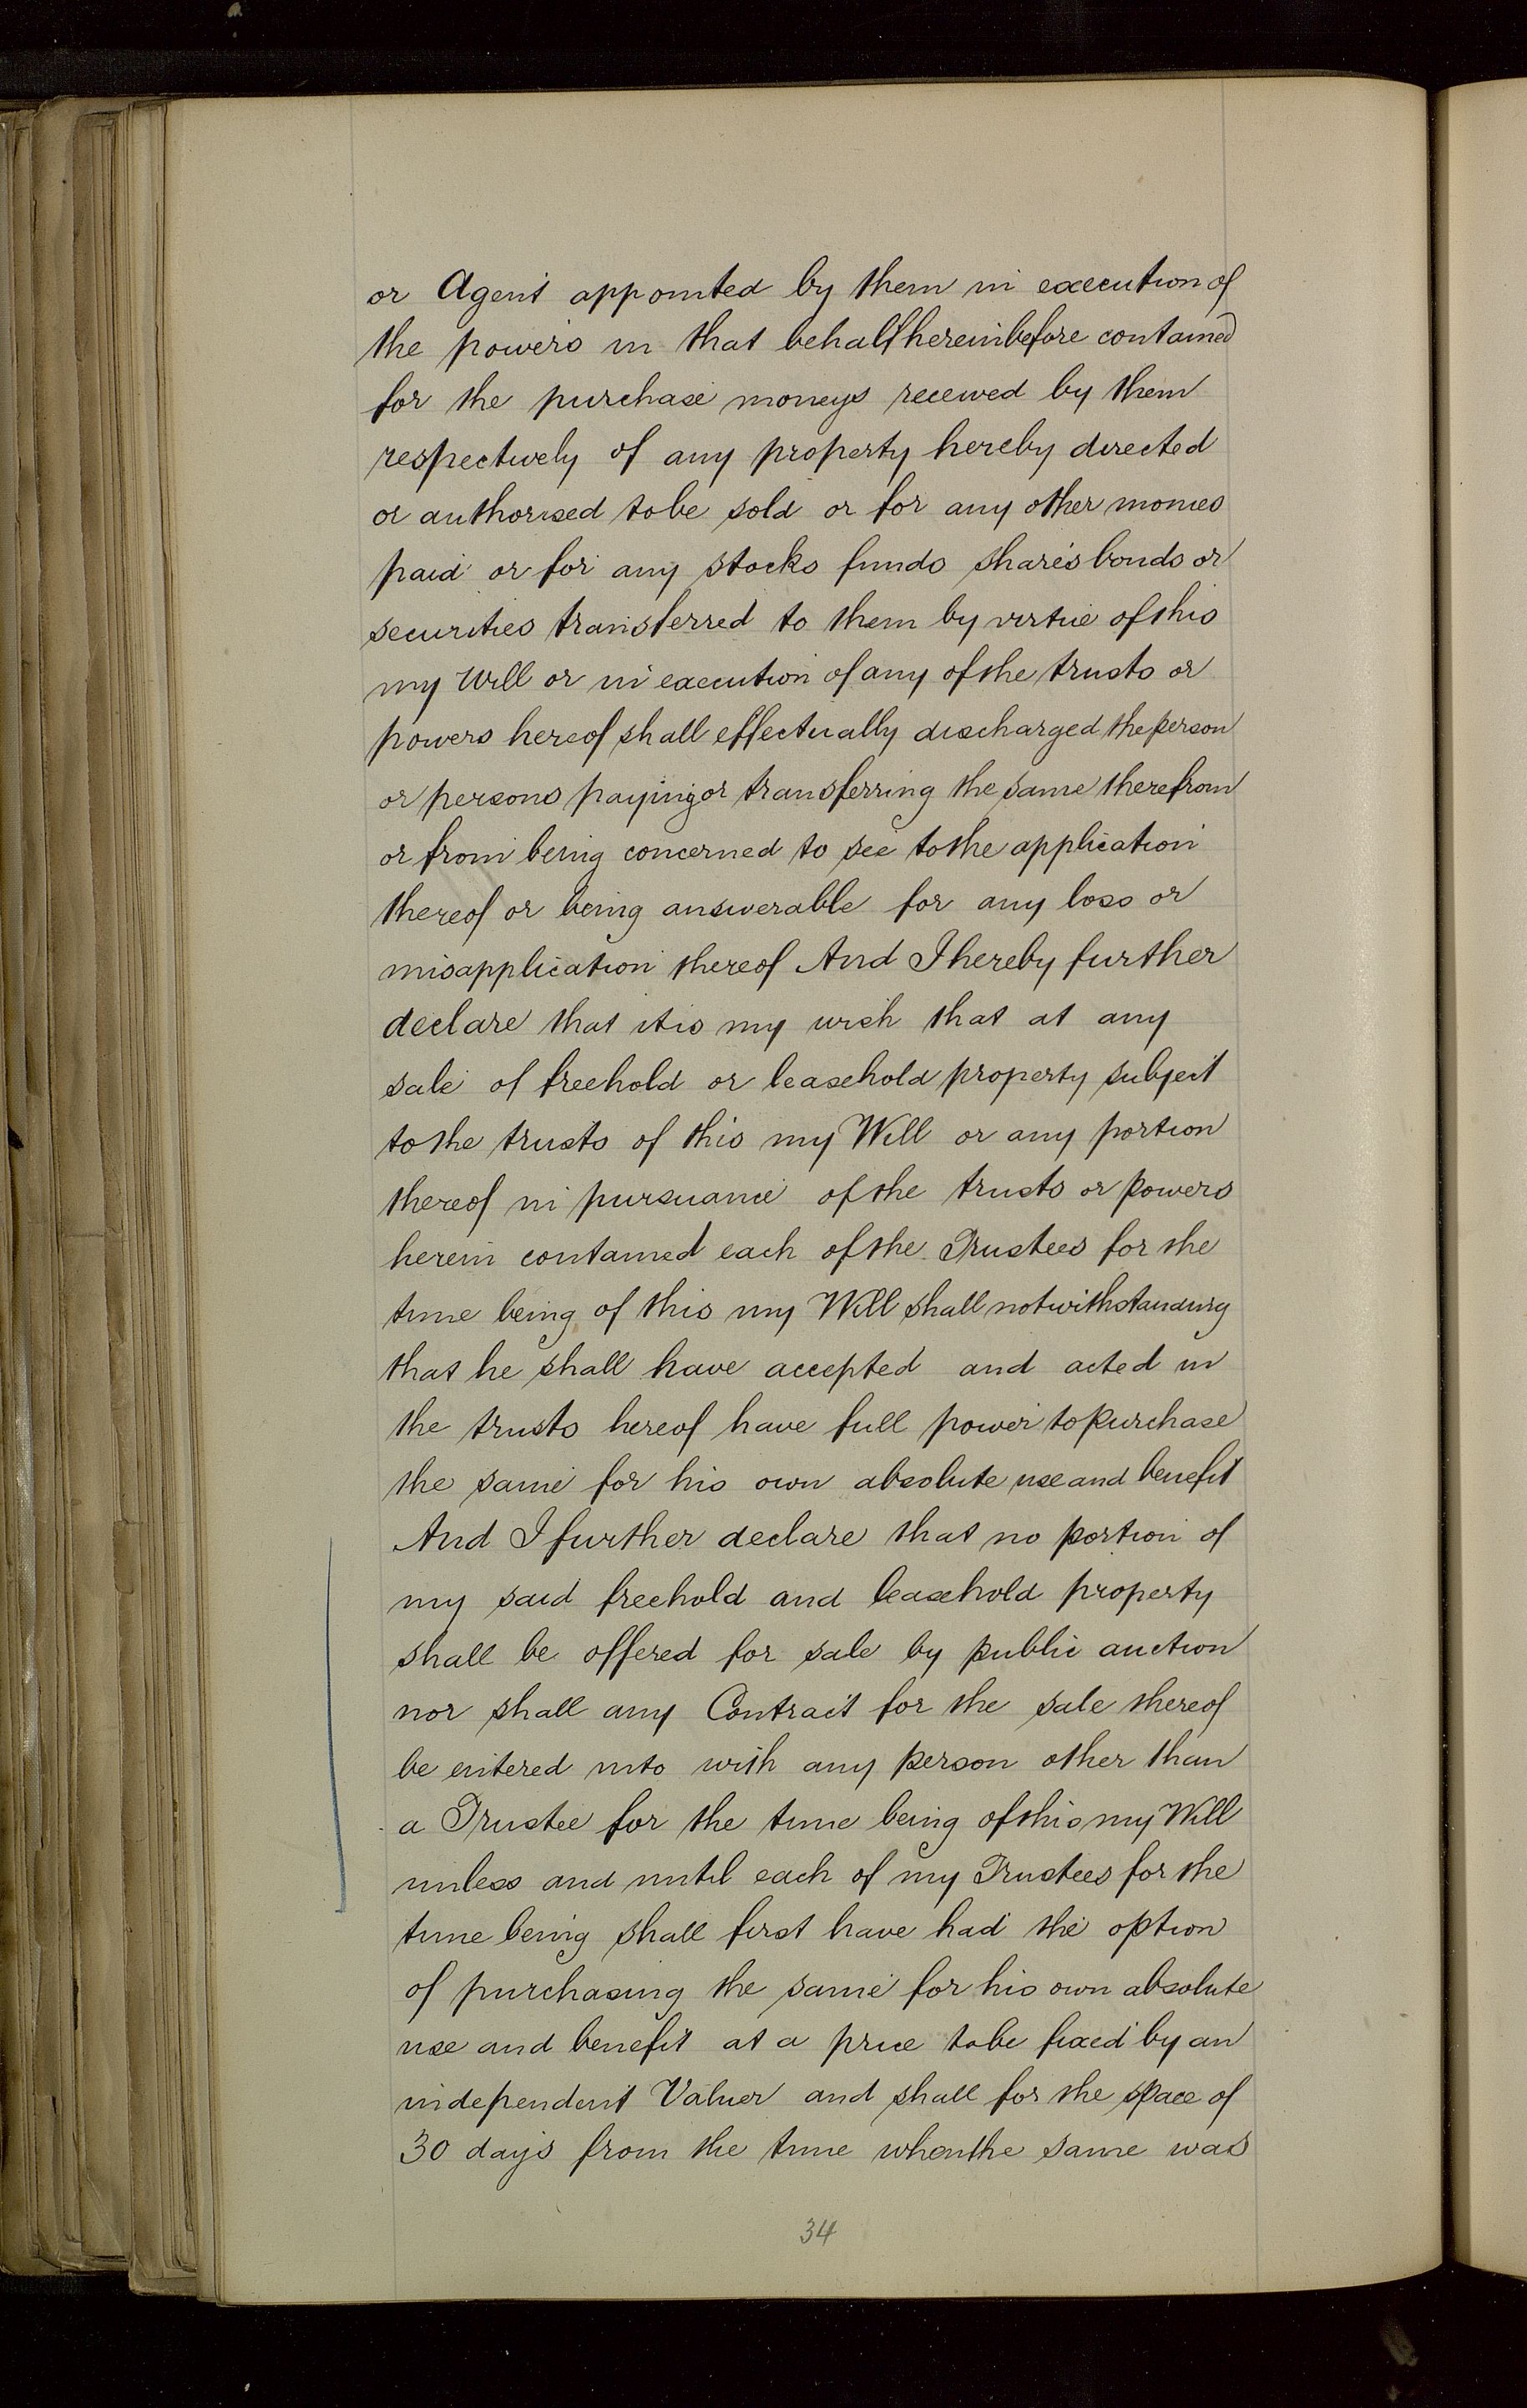 or Agent appointed by them in execution of
the powers in that behalf hereinbefore contained
for the purchase moneys received by them
respectively of any property hereby directed
or authorised to be sold or for any other monies
paid or for any stocks funds shares bonds or
securities transferred to them by virtue of this
my Will or in execution of any of the trusts or
powers hereof shall effectually discharged the person
or persons paying or transferring the same therefrom
or from being concerned to see to the application
thereof or being answerable for any loss or
misapplication thereof And I hereby further
declare that it is my wish that at any
sale of freehold or leasehold property subject
to the trusts of this my Will or any portion
thereof in pursuance of the trusts or powers
herein contained each of the Trustees for the
time being of this my Will shall notwithstanding
that he shall have accepted and acted in
the trusts hereof have full power to purchase
the same for his own absolute use and benefit
And I further declare that no portion of
my said freehold and leasehold property
shall be offered for sale by public auction
nor shall any Contract for the sale thereof
be entered into with any person other than
a Trustee for the time being of this my Will
unless and until each of my Trustees for the
time being shall first have had the option
of purchasing the same for his own absolute
use and benefit at a price to be fixed by an
independent Valuer and shall for the space of
30 days from the time when the same was
34